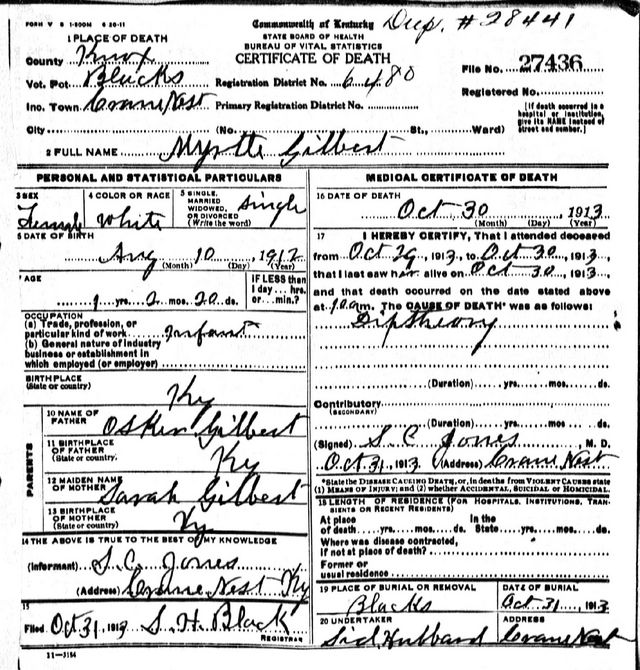 FORM V S 1-200M 6 20-11
Commonwealth of Kentucky Dup. #28441
STATE BOARD OF HEALTH
BUREAU OF VITAL STATISTICS
CERTIFICATE OF DEATH
1 PLACE OF DEATH
County Knox
Vot. Pct. Blacks Registration District No. 6480
Inc. Town Crane Nest Primary Registration District No.
File No. 27436
Registered No.
[If death occurred in a hospital or institution, give its NAME instead of street and number.]
City (No. St., Ward)
2 FULL NAME Myrtle Gilbert
PERSONAL AND STATISTICAL PARTICULARS
3 SEX Female
4 COLOR OR RACE White
5 SINGLE, MARRIED WIDOWED, OR DIVORCED (Write the word) Single
6 DATE OF BIRTH
Aug 10, 1912
(Month) (Day) (Year)
7 AGE
1 yrs. 2 mos. 20 ds.
IF LESS than 1 day... hrs. or... min.?
OCCUPATION
(a) Trade, profession, or particular kind of work Infant
(b) General nature of industry
business or establishment in
which employed (or employer)
BIRTHPLACE
(State or country) Ky
PARENTS
10 NAME OF FATHER Gilbert
11 BIRTHPLACE OF FATHER (State or country) Ky
12 MAIDEN NAME OF MOTHER Sarah Gilbert
13 BIRTHPLACE OF MOTHER (State or country) Ky
14 THE ABOVE IS TRUE TO THE BEST OF MY KNOWLEDGE
(Informant) S.C. Jones
(Address) Crane Nest Ky
15
Filed Oct 31, 1913 S. H. Black
REGISTRAR
11—3184
MEDICAL CERTIFICATE OF DEATH
16 DATE OF DEATH
Oct 30, 1913
(Month) (Day) (Year)
17 I HEREBY CERTIFY, That I attended deceased
from Oct 29, 1913, to Oct 30, 1913,
that I last saw her alive on Oct 30, 1913,
and that death occurred on the date stated above
at m. The CAUSE OF DEATH* was as follows:
Diptheory
(Duration) yrs. mos. ds.
Contributory
(SECONDARY)
(Duration) yrs. mos. ds.
(Signed) S. C. Jones, M. D.
Oct 31, 1913 (Address) Crane Nest
*State the DISEASE CAUSING DEATH, or, in deaths from VIOLENT CAUSES state
(1) MEANS OF INJURY; and (2) whether ACCIDENTAL, SUICIDAL or HOMICIDAL.
18 LENGTH OF RESIDENCE (FOR HOSPITALS, INSTITUTIONS, TRANSIENTS OR RECENT RESIDENTS)
At place of death yrs. mos. ds. In the State yrs. mos. ds.
Where was disease contracted,
if not at place of death?
Former or
usual residence
19 PLACE OF BURIAL OR REMOVAL DATE OF BURIAL
Blacks Oct 31, 1913
20 UNDERTAKER ADDRESS
Sid Hubbard Crane Nest